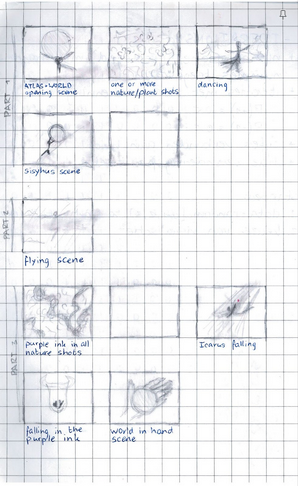 PART 1
ATLAS + WORLD
opening scene
one or more
nature/plant shots
dancing
sisyhus scene
PART 2
flying scene
PART 3
purple ink in all
nature shots
Icarus falling
falling in the
purple ink
world in hand
scene